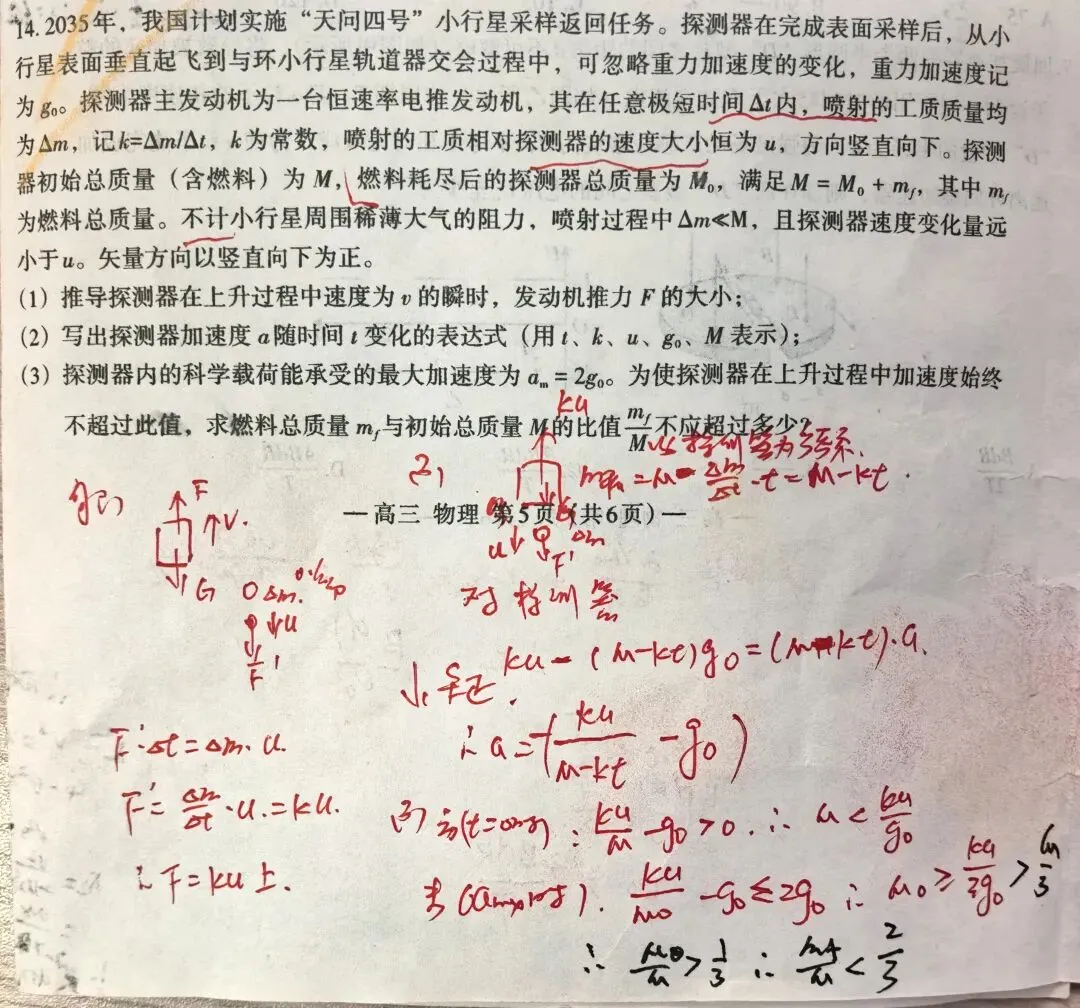 14. 2035年，我国计划实施“天问四号”小行星采样返回任务。探测器在完成表面采样后，从小
行星表面垂直起飞到与环小行星轨道器交会过程中，可忽略重力加速度的变化，重力加速度记
为g₀。探测器主发动机为一台恒速率电推发动机，其在任意极短时间Δt内，喷射的工质质量均
为Δm，记k=Δm/Δt，k为常数，喷射的工质相对探测器的速度大小恒为u，方向竖直向下。探测
器初始总质量（含燃料）为M，燃料耗尽后的探测器总质量为M₀，满足M = M₀ + m_f，其中m_f
为燃料总质量。不计小行星周围稀薄大气的阻力，喷射过程中Δm≪M，且探测器速度变化量远
小于u。矢量方向以竖直向下为正。
(1) 推导探测器在上升过程中速度为v的瞬时，发动机推力F的大小；
(2) 写出探测器加速度a随时间t变化的表达式（用t、k、u、g₀、M表示）；
(3) 探测器内的科学载荷能承受的最大加速度为a_m = 2g₀。为使探测器在上升过程中加速度始终
不超过此值，求燃料总质量m_f与初始总质量M的比值m_f/M不应超过多少？
ku
以探测器为
(2)
= M - Δm/Δt · t = M - kt.
F
V.
G
Δm
u
F'
— 高三 物理 第5页（共6页）—
u
Δm
F'
对探测器
ku - (M-kt)g₀ = (M-kt)·a.
F'·Δt = Δm·u.
∴ a = -(ku/(M-kt) - g₀)
F' = Δm/Δt · u. = ku.
(3) (t=0时): ku/M - g₀ > 0. ∴ M < ku/g₀
∴ F = ku 上.
ku/M₀ - g₀ ≤ 2g₀ ∴ M₀ ≥ ku/3g₀ > M/3
∴ M₀/M > 1/3 ∴ m_f/M < 2/3